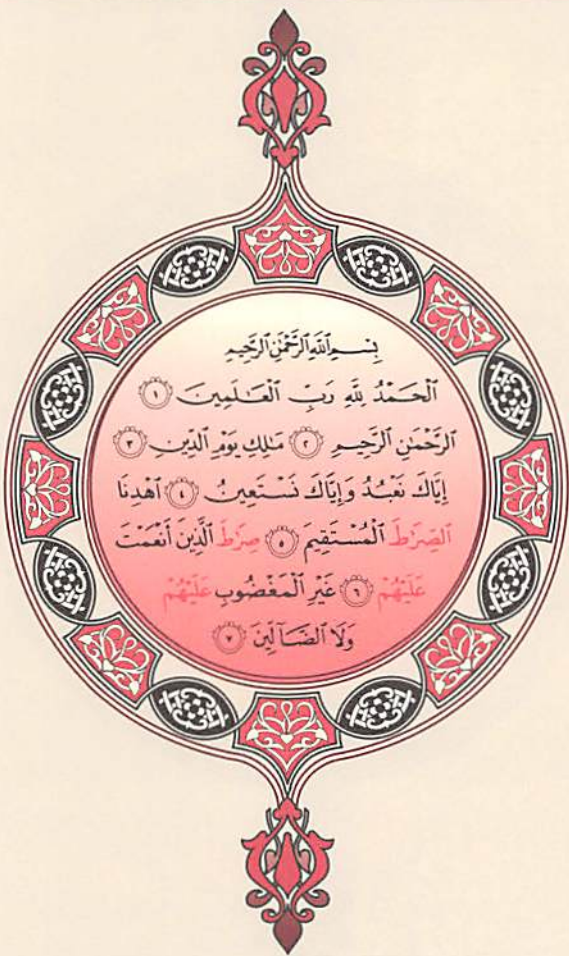 بِسْمِ ٱللَّهِ ٱلرَّحْمَٰنِ ٱلرَّحِيمِ
ٱلْحَمْدُ لِلَّهِ رَبِّ ٱلْعَٰلَمِينَ ١
ٱلرَّحْمَٰنِ ٱلرَّحِيمِ ٢ مَلِكِ يَوْمِ ٱلدِّينِ ٣
إِيَّاكَ نَعْبُدُ وَإِيَّاكَ نَسْتَعِينُ ٤ ٱهْدِنَا
ٱلصِّرَٰطَ ٱلْمُسْتَقِيمَ ٥ صِرَٰطَ ٱلَّذِينَ أَنْعَمْتَ
عَلَيْهُمْ ٦ غَيْرِ ٱلْمَغْضُوبِ عَلَيْهُمْ
وَلَا ٱلضَّآلِّينَ ٧